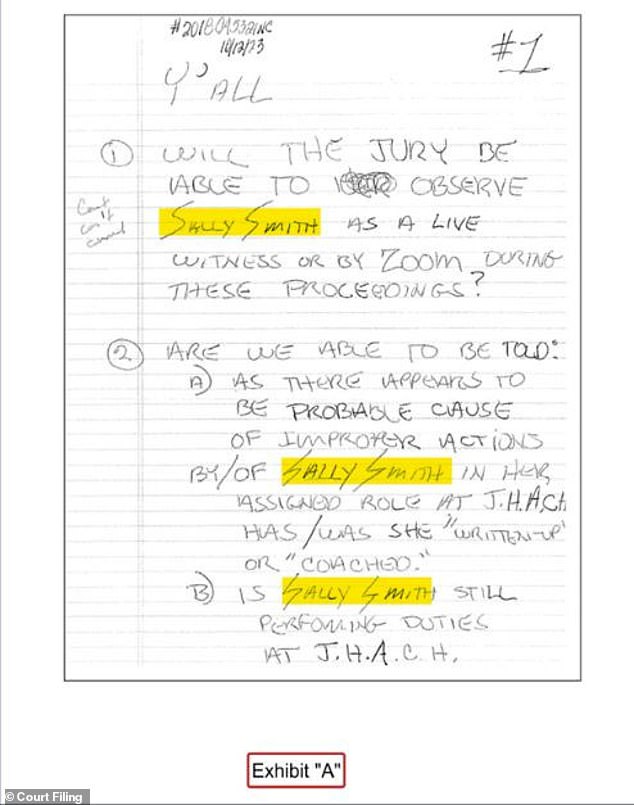 #2018 04532INC
10/12/23
#1
Y'ALL
① WILL THE JURY BE
ABLE TO OBSERVE
SALLY SMITH AS A LIVE
WITNESS OR BY ZOOM DURING
THESE PROCEEDINGS?
② ARE WE ABLE TO BE TOLD:
A) AS THERE APPEARS TO
BE PROBABLE CAUSE
OF IMPROPER ACTIONS
BY/OF SALLY SMITH IN HER
ASSIGNED ROLE AT J.H.A.C.H
HAS/WAS SHE "WRITTEN-UP"
OR "COACHED."
B) IS SALLY SMITH STILL
PERFOMING DUTIES
AT J.H.A.C.H.
Exhibit "A"
© Court Filing